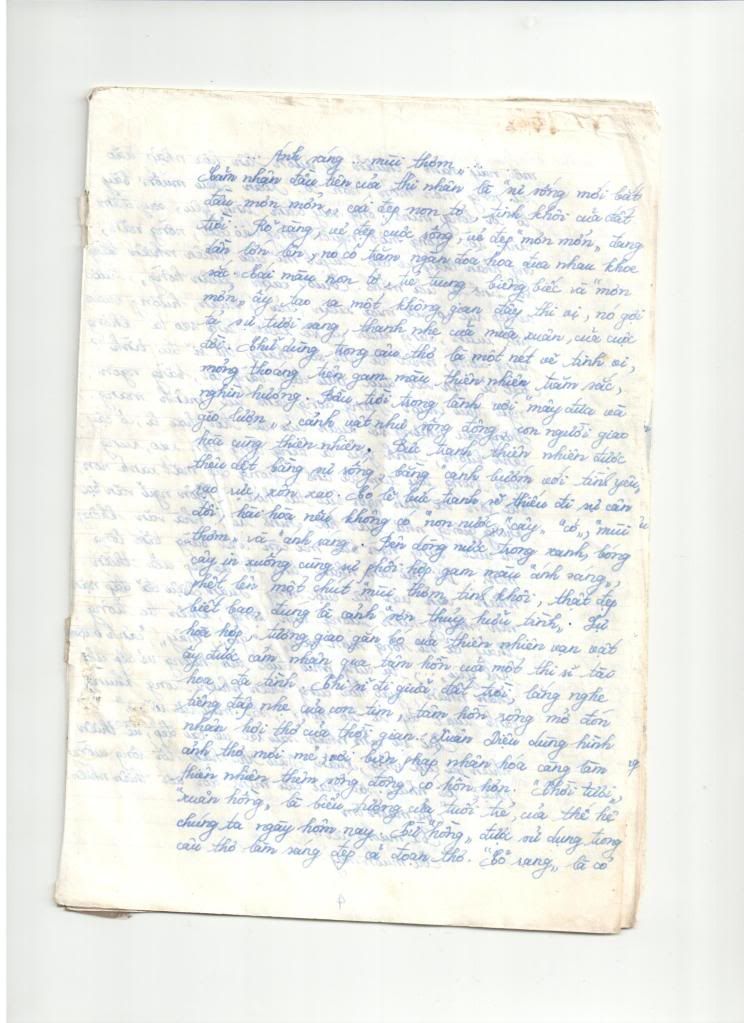 ... Ánh sáng ... mùi thơm ... "
Cảm nhận đầu tiên của thi nhân là sự sống mới bắt
đầu mơn mởn", cái đẹp non tơ, tinh khôi của đất
trời. Rõ ràng, vẻ đẹp cuộc sống, vẻ đẹp mơn mởn" đang
dần lớn lên, nó có trăm ngàn đóa hoa đua nhau khoe
sắc. Cái màu non tơ, trẻ trung biêng biếc và "mơn
mởn" ấy tạo ra một không gian đầy thi vị, nó gợi
tả sự tươi sáng, thanh nhẹ của mùa xuân, của cuộc
đời. Chữ dùng trong câu thơ là một nét vẽ tinh vi,
mỏng thoáng trên gam màu thiên nhiên trăm sắc,
nghìn hương. Bầu trời trong lành với "mây đưa và
gió lượn", cảnh vật như sống động, con người giao
hòa cùng thiên nhiên. Bức tranh thiên nhiên được
thêu dệt bằng sự sống, bằng "cánh bướm với tình yêu,
rạo rực, xôn xao. Có lẽ bức tranh sẽ thiếu đi sự cân
đối, hài hòa nếu không có "non nước", "cây", "cỏ", "mùi
thơm" và "ánh sáng". Bên dòng nước trong xanh, bóng
cây in xuống cùng sự phối hợp gam màu "ánh sáng",
phết lên một chút mùi thơm, tinh khôi, thật đẹp
biết bao, đúng là cảnh "sơn thủy hữu tình". Sự
hòa hợp, tương giao gắn bó của thiên nhiên vạn vật
ấy được cảm nhận qua tâm hồn của một thi sĩ tài
hoa, đa tình. Thi sĩ đi giữa đất trời, lắng nghe
tiếng đập nhẹ của con tim, tâm hồn rộng mở đón
nhận hơi thở của thời gian. Xuân Diệu dùng hình
ảnh thơ mới mẻ, với biện pháp nhân hóa càng làm
thiên nhiên thêm sống động, có hồn hơn. "Thời tươi",
"xuân hồng" là biểu tượng của tuổi trẻ, của thế hệ
chúng ta ngày hôm nay. Chữ "hồng" được sử dụng trong
câu thơ làm sáng đẹp cả đoạn thơ. "Cỏ rạng" là cỏ
4